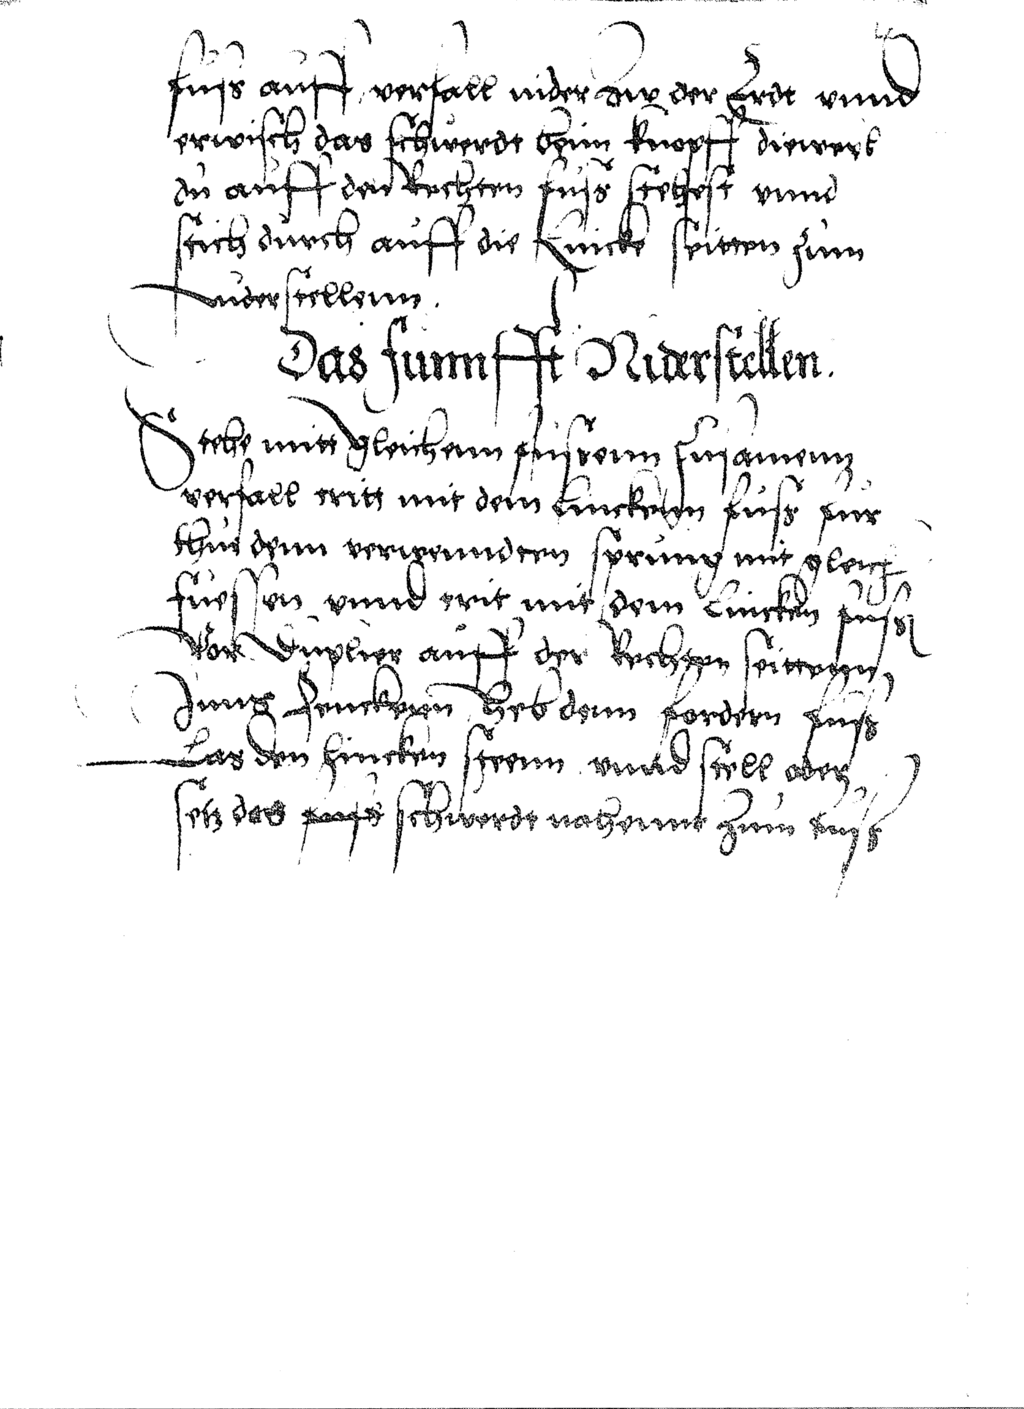 fuss auff, verfall nider zur der Erdt vnnd
erwisch das schwerdt beim knopff diewerl
du auff den Rechten fuss stehest vnnd
stich durch auff die Lincke seitten zum
niderstellenn.
Das funnfft Niderstellen.
Stehe mitt gleichenn fuissenn zusamenn
verfall tritt mit dem Linckenn fuss fur
thue denn verwenndten sprung mit gleich
fuessen vnnd trit mit dem Lincken fuss
vor Duplier auff der Rechten seittenn
Jnns Senckenn Heb denn fordern fuss
Las den hincken steenn vnnd stell oder
setz das fuss schwerdt nahennt zum fuss